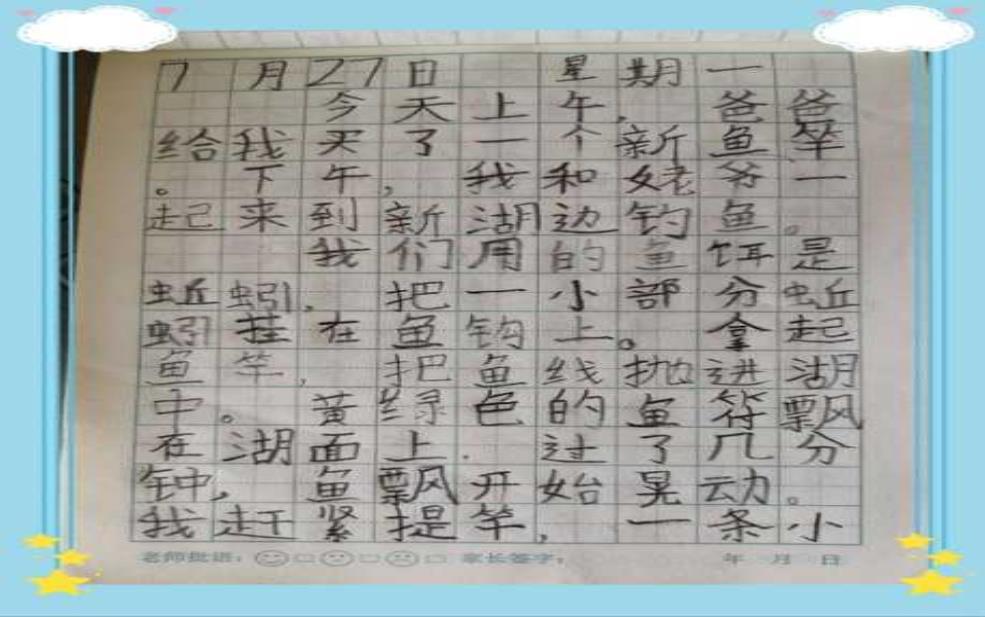 7月27日 星期一
今天上午，爸爸
给我买了一个新鱼竿
。下午，我和姥爷一
起来到新湖边钓鱼。
我们用的鱼饵是
蚯蚓，把一小部分蚯
蚓挂在鱼钩上。拿起
鱼竿，把鱼线抛进湖
中。黄绿色的鱼符飘
在湖面上．过了几分
钟，鱼飘开始晃动。
我赶紧提竿，一条小
老师批语： 家长签字： 年 月 日